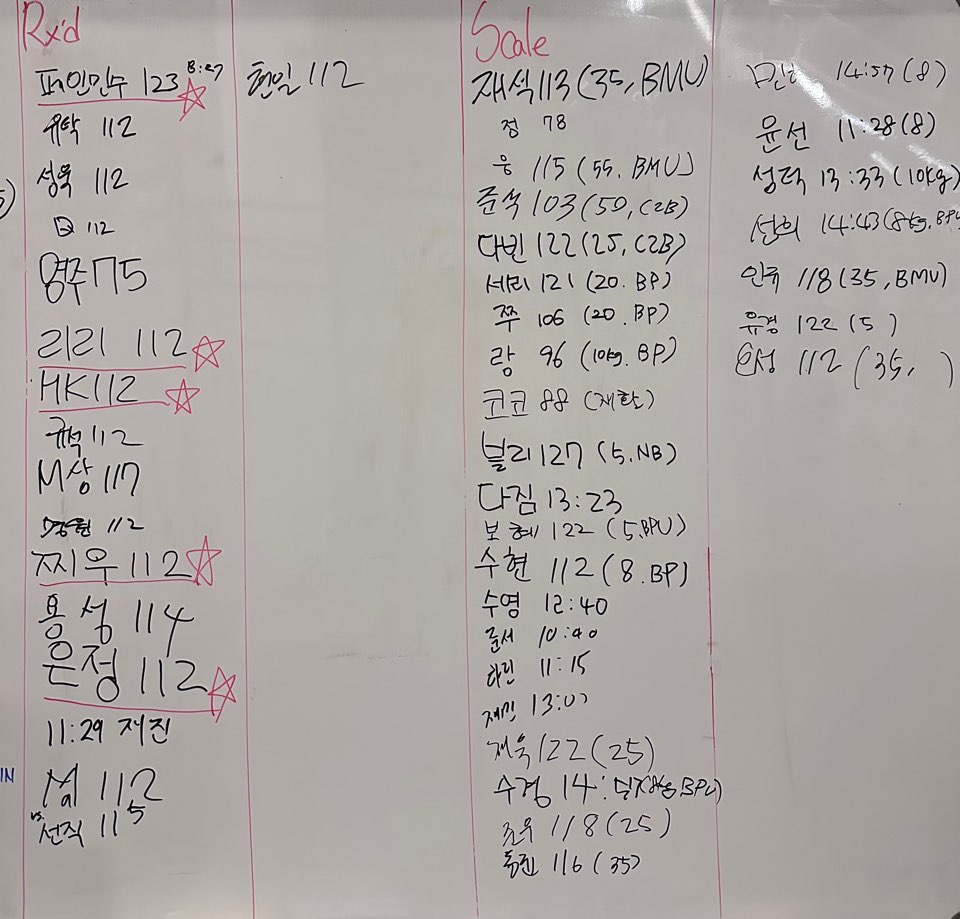 Rx'd
페인민수 123 8:27
유탁 112
성욱 112
Q 112
영주 75
리리 112
HK 112
규석 112
M상 117
112
찌우 112
용성 114
은정 112
11:29 재진
112
vs. 선직 115
IN
현일 112
Scale
재석 113 (35, BMU)
정 78
웅 115 (55. BMU)
준석 103 (50, C2B)
다빈 122 (25, C2B)
세리 121 (20. BP)
쭈 106 (20. BP)
랑 96 (10kg. BP)
코코 88 (재활)
블리 127 (5. NB)
다짐 13:23
보혜 122 (5. BPU)
수현 112 (8. BP)
수영 12:40
준서 10:40
하린 11:15
재민 13:07
재욱 122 (25)
수경 14: BPU)
118 (25)
동진 116 (35)
14:57 (8)
윤선 11:28 (8)
성덕 13:33 (10kg)
선희 14:43 (8kg. BPU
118 (35, BMU)
유경 122 (5)
112 (35, )